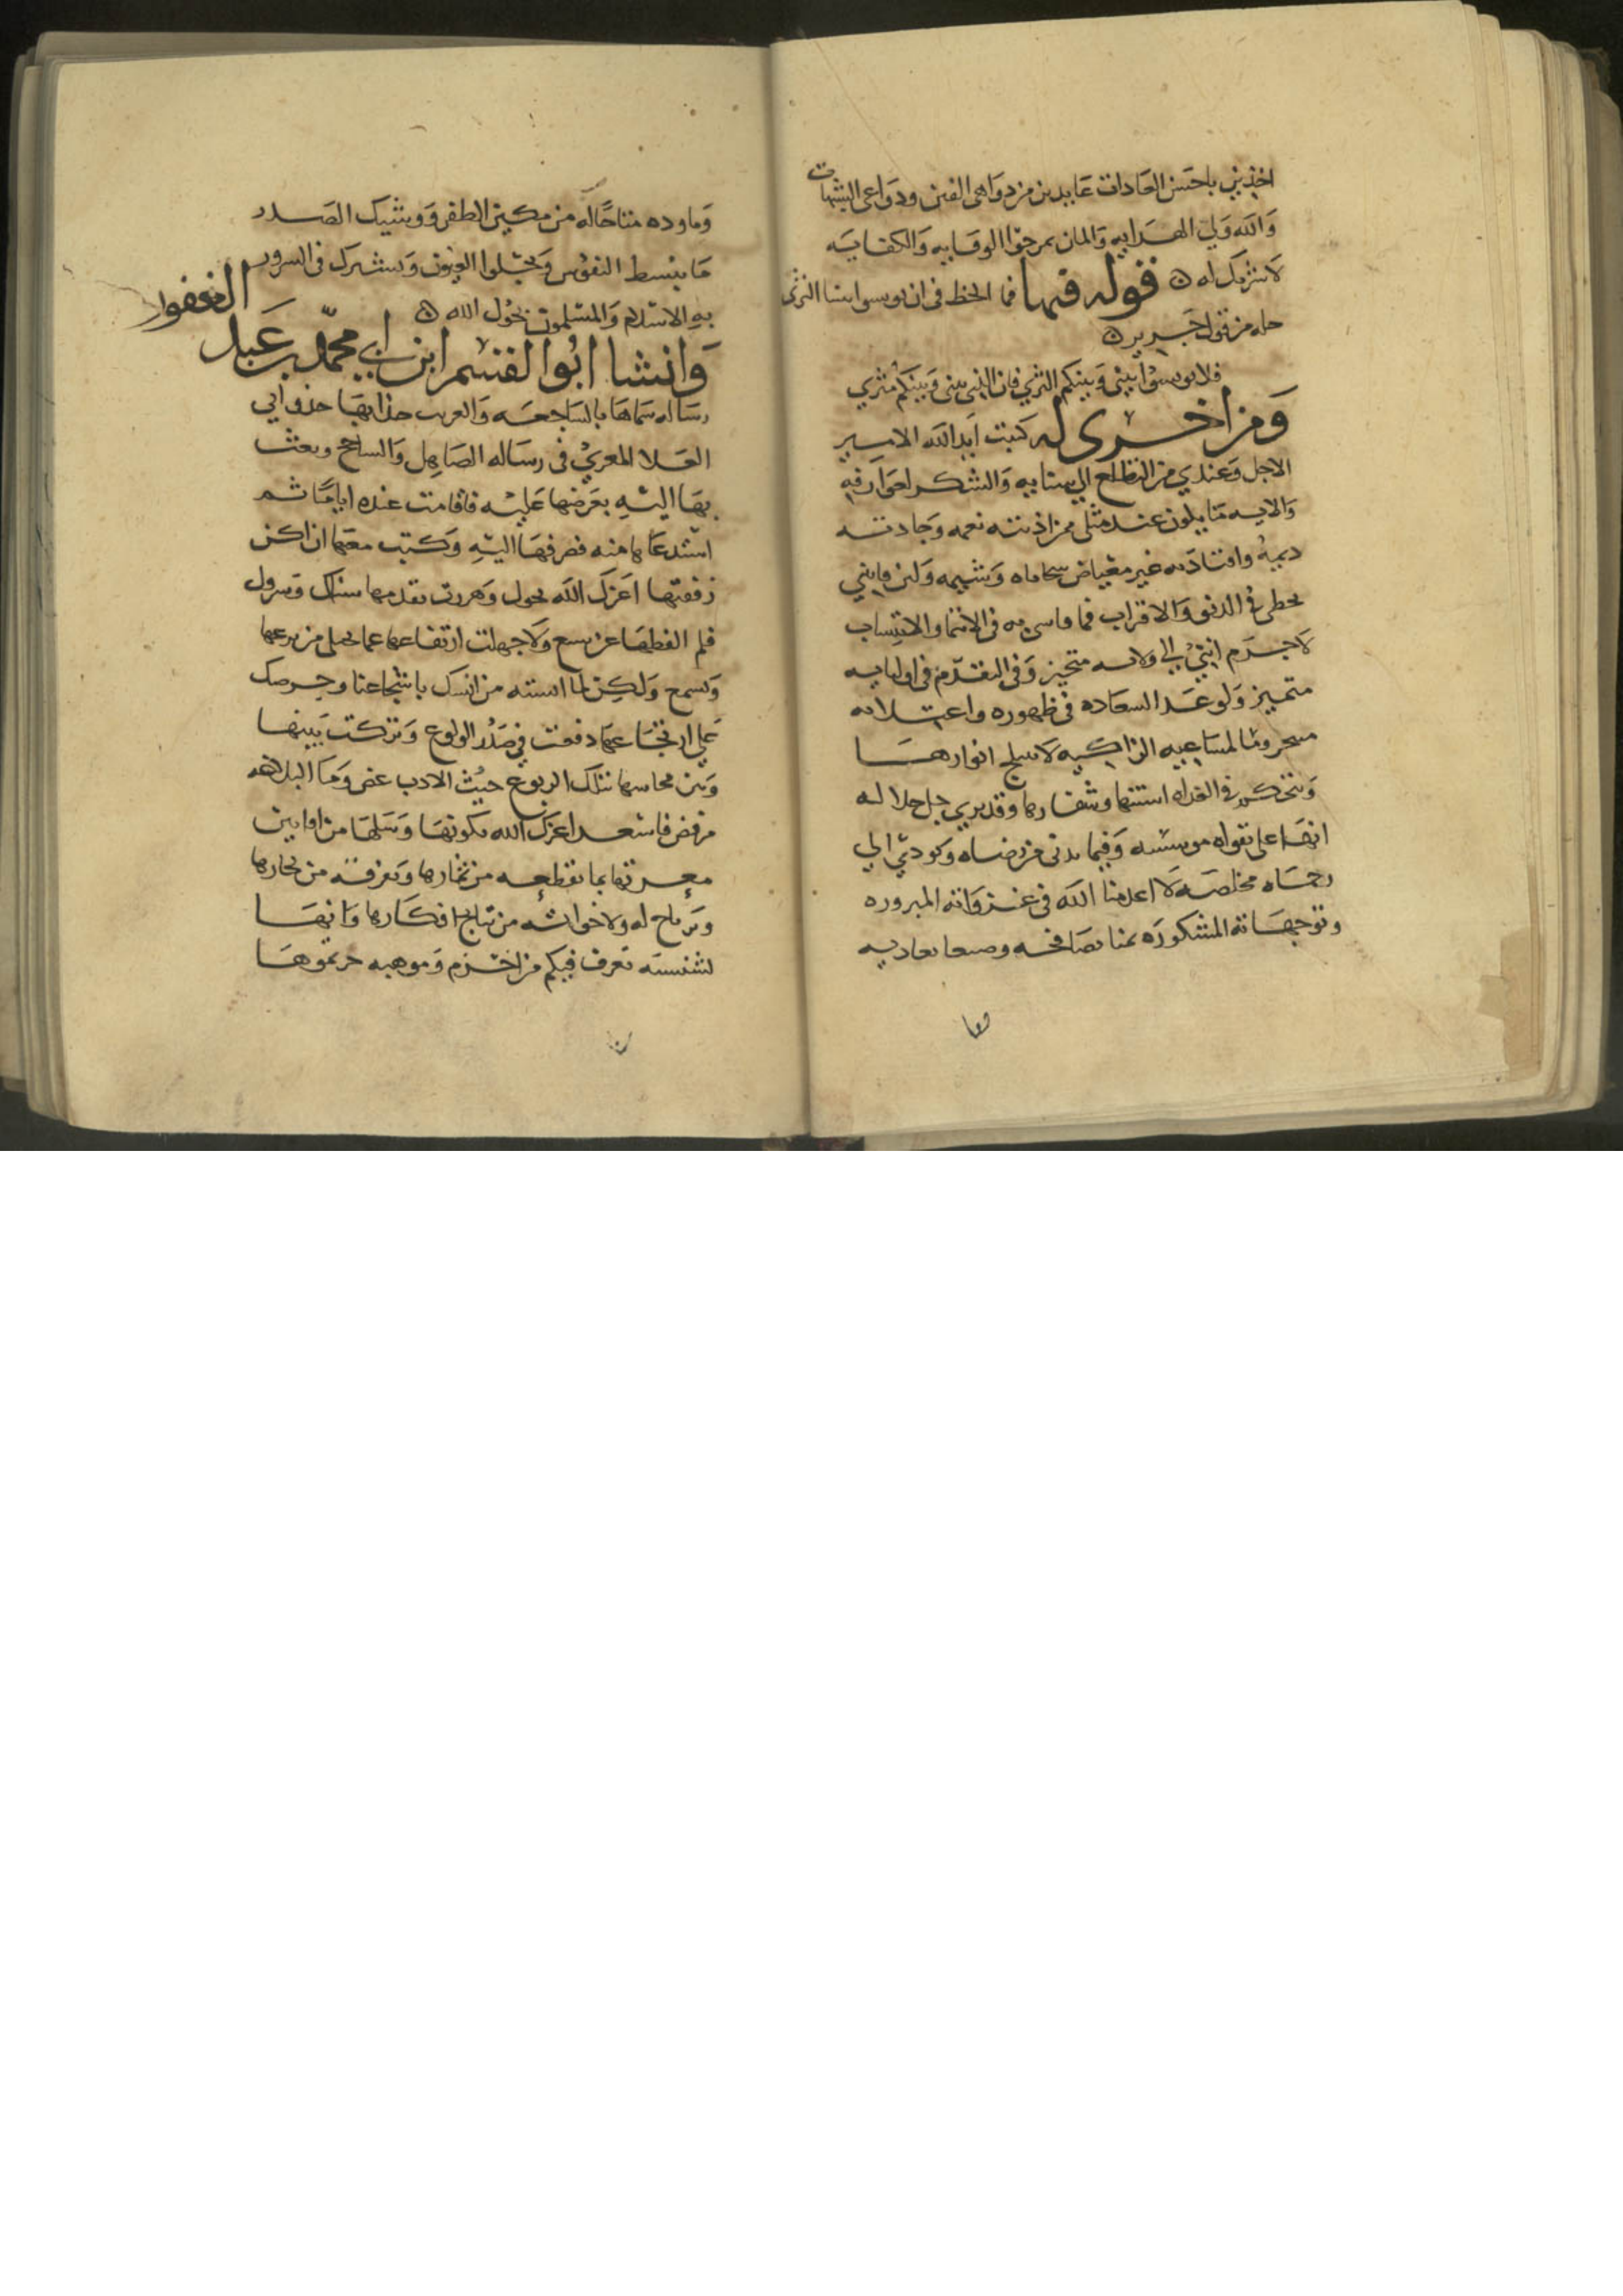 اخذيني باحسن العادات عايدين من دواهي الفتن ودواعي الشبهات
والله ولي الهدايه والمان بمرجو الوقايه والكفايه
لا شريك له فقوله فيها فما الحظ في ان يوبسوا بيننا الثرى
حله من قول جرير
فلا توبسوا بيني وبينكم الثري فان الذي بيني وبينكم مثري
ومن اخرى له كتبت ايد الله الامير
الاجل وعندي من التطلع الي سنايه والشكر لعوارفه
والايه ما يكون عند مثلي ممن اذنته نعمه وجادته
ديمه واقتادته غير مغياض سحاماه وشيمه ولين فاتني
بحظي في الدنو والاقتراب فما فاتني به في الانتما والانتساب
لا جرم انني الي ولايه متحيز وفي التقدم في اوليايه
متميز ولو عد السعاده في ظهوره واعتلايه
محروما لمساعيه الزاكيه لا تبلج انوارها
وتتحكم في العداه اسنتها وشفارها وقد يري جل جلاله
انها علي تقواه موسسه وفيما يدني من رضاه ويودي الي
رحماه مخلصه لا اعدمنا الله في غزواته المبروره
وتوجهاته المشكوره يمنا يصافحه وصنعا يغاديه
وما وده متاحا له من مكين الظفر ووشيك الصدر
ما يبسط النفوس ويجلوا العيون ويشترك في السرور
به الاسلام والمسلمون بحول الله
وانشا ابوا القسم ابن ابي محمد بن عبد الغفور
رساله سماها بالساجعه والغريب حذا بها حذو ابي
العلا المعري في رساله الصاهل والساحج وبعث
بها اليه بعرضها عليه فاقامت عنده اياما ثم
استدعاها منه فصرفها اليه وكتب معها ان اكن
زففتها اعزك الله بحول وهررت بقدمها سناك وسرول
فلم الفظها عن بسع ولا جهلت ارتفاعها عما يجلي من نوعها
ويسمع ولكن لما انسته من انسك بانتجاعنا وحرصك
علي ارتجاعها دفعت في صدر الولوع وتركت بينها
وبين محاسنها تلك الربوع حيث الادب غض وما البلاغه
مرفض فاسعد اعزك الله بكونها وسلها من افانين
معرتها بما تقطعه من ثمارها وتغرفه من بحارها
ويرتاح له ولاخواته من نتايج افكارها وانها
لشنشنه تعرف فيكم من اخزم وموهبه حزتموها